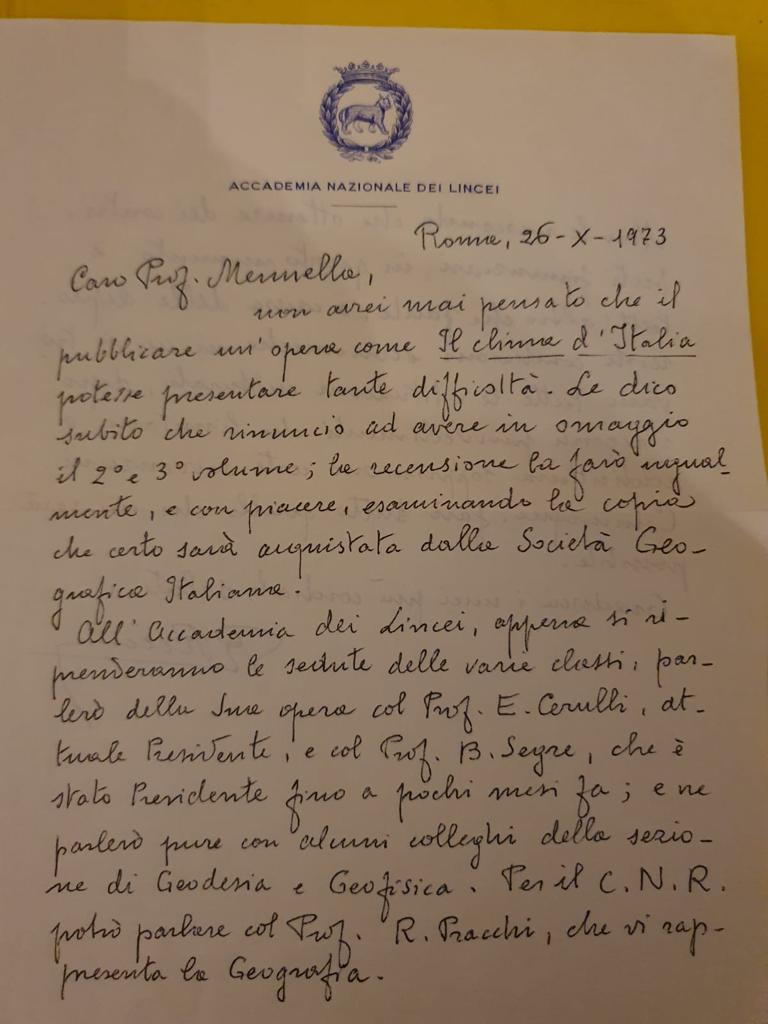 ACCADEMIA NAZIONALE DEI LINCEI
Roma, 26-X-1973
Caro Prof. Mennella,
non avrei mai pensato che il
pubblicare un'opera come Il clima d'Italia
potesse presentare tante difficoltà. Le dico
subito che rinuncio ad avere in omaggio
il 2° e 3° volume; la recensione la farò ugual-
mente, e con piacere, esaminando la copia
che certo sarà acquistata dalla Società Geo-
grafica Italiana.
All'Accademia dei Lincei, appena si ri-
prenderanno le sedute delle varie classi, par-
lerò della Sua opera col Prof. E. Cerulli, at-
tuale Presidente, e col Prof. B. Segre, che è
stato Presidente fino a pochi mesi fa; e ne
parlerò pure con alcuni colleghi della sezio-
ne di Geodesia e Geofisica. Per il C.N.R.
potrò parlare col Prof. R. Pracchi, che vi rap-
presenta la Geografia.